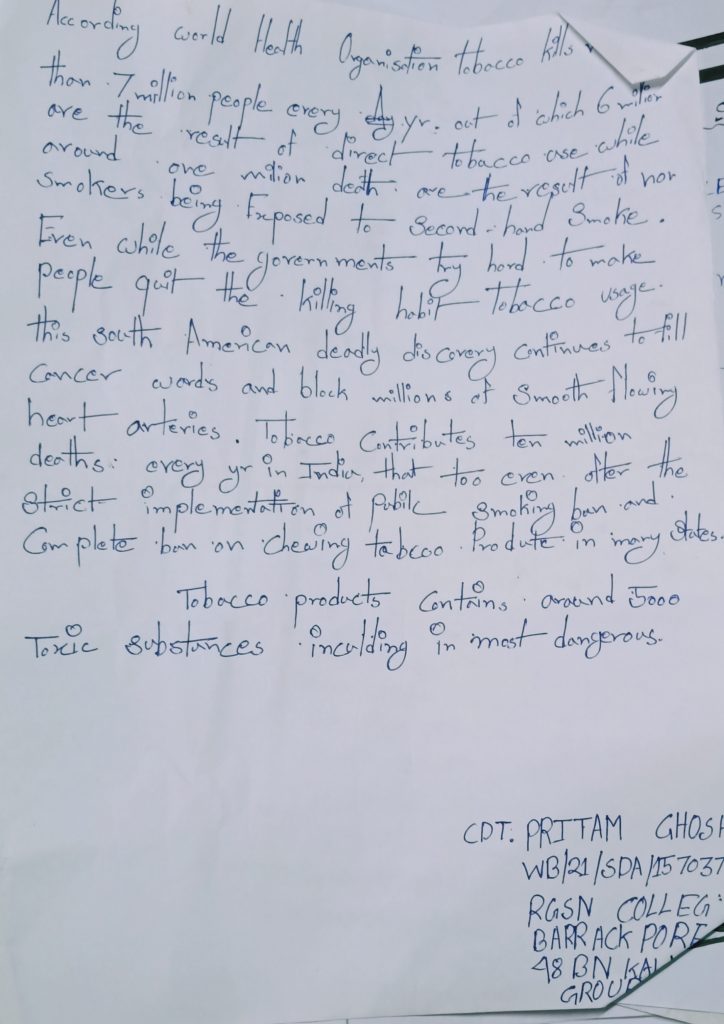 According world Health Organisation tobacco kills
than 7 million people every yr. out of which 6 million
are the result of direct tobacco use while
around one million death are the result of non
smokers being Exposed to second-hand smoke.
Even while the governments try hard to make
people quit the killing habit Tobacco usage.
this south American deadly discovery continues to fill
Cancer words and block millions of smooth flowing
heart arteries. Tobacco Contributes ten million
deaths: every yr in India, that too even after the
strict implementation of Public smoking ban and
Complete ban on chewing tabcoo Produte in many states.
Tobacco products Contains around 5000
Toxic substances inculding in most dangerous.
CDT. PRITAM GHOSH
WB/21/SDA/157037
RGSN COLLEG
BARRACKPORE
48 BN KAL
GROUP